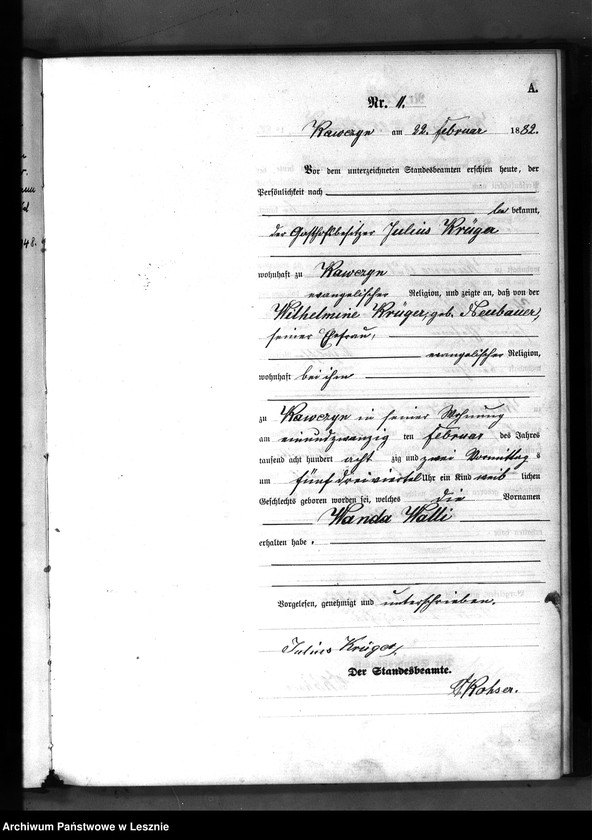 A.
Nr. 11.
Kawczyn am 22. Februar 1882.
Vor dem unterzeichneten Standesbeamten erschien heute, der
Persönlichkeit nach
be kannt,
der Gasthofbesitzer Julius Krüger
wohnhaft zu Kawczyn
evangelischer Religion, und zeigte an, daß von der
Wilhelmine Krüger, geb. Neubauer,
seiner Ehefrau,
evangelischer Religion,
wohnhaft bei ihm
zu Kawczyn in seiner Wohnung
am einundzwanzig ten Februar des Jahres
tausend acht hundert acht zig und zwei Vormittag s
um fünf dreiviertel Uhr ein Kind weib lichen
Geschlechts geboren worden sei, welches die Vornamen
Wanda Walli
erhalten habe.
Vorgelesen, genehmigt und unterschrieben.
Julius Krüger
Der Standesbeamte.
48.
Archiwum Państwowe w Lesznie